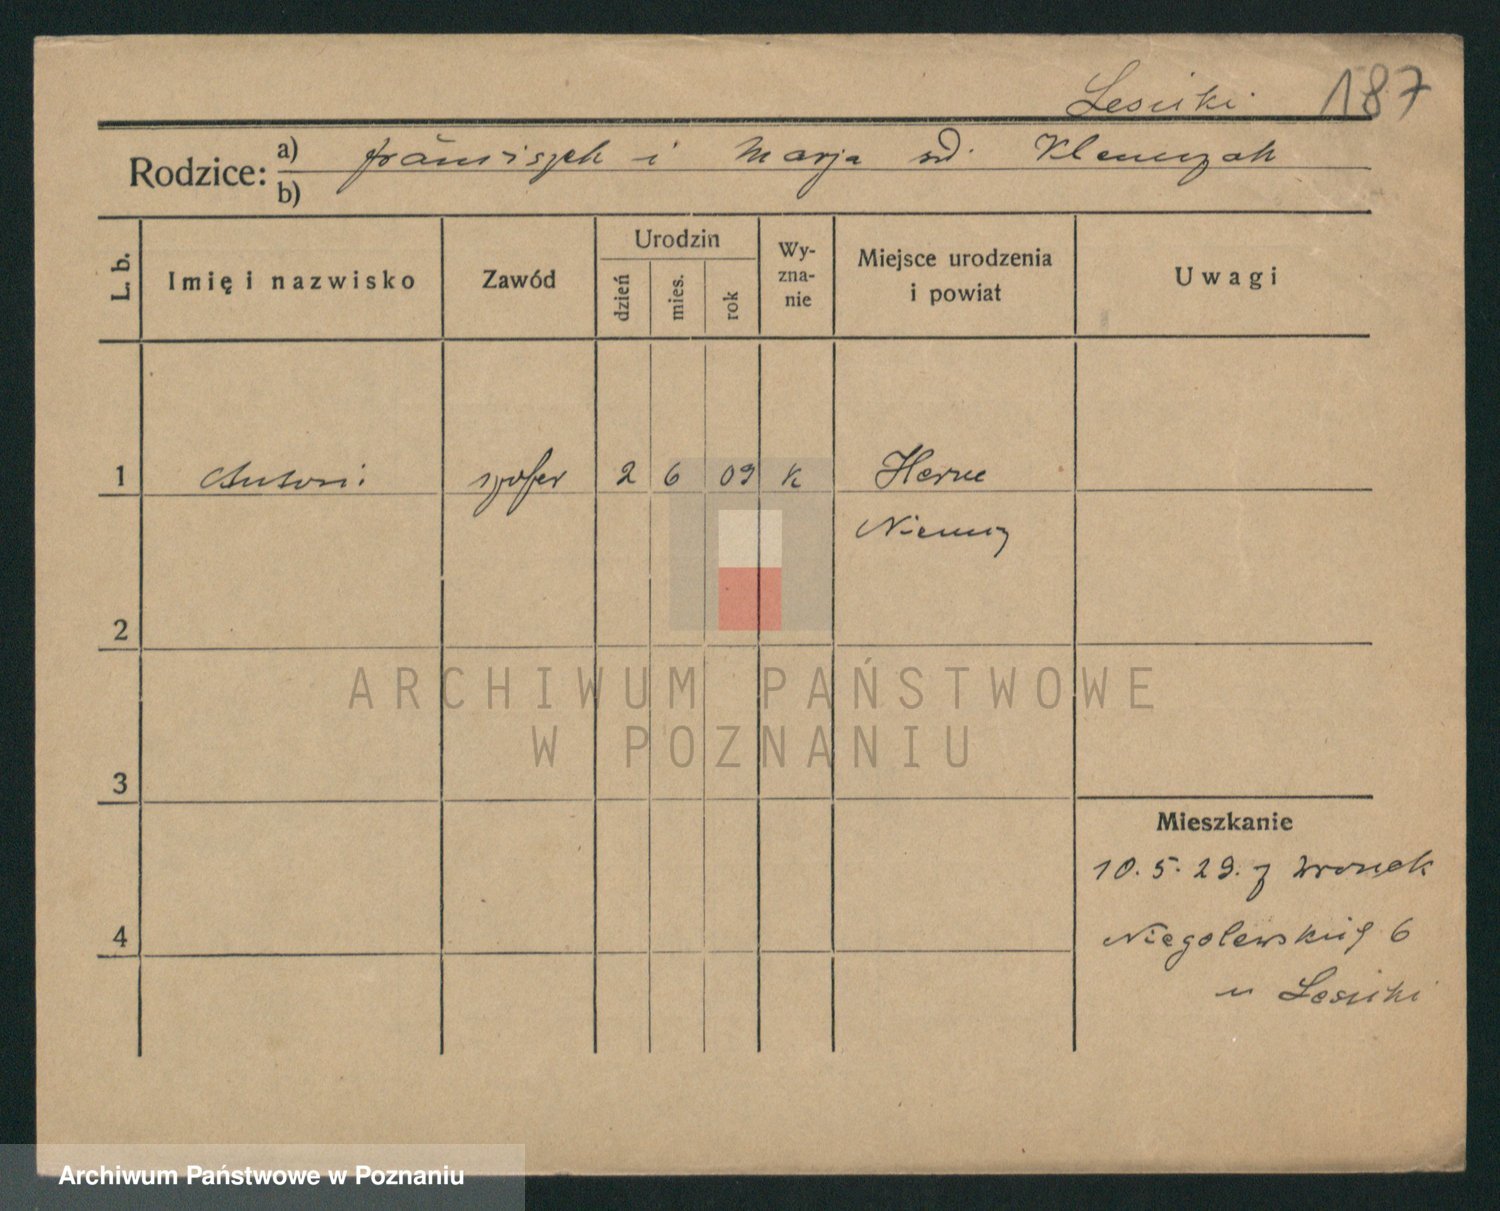 Lesicki 187
Rodzice: a) Franciszek i Marja zd. Klemczak
b)
L. b. Imię i nazwisko Zawód Urodzin dzień mies. rok Wy-zna-nie Miejsce urodzenia i powiat Uwagi
1 Antoni szofer 2 6 09 k Herne
Niemcy
2
ARCHIWUM PAŃSTWOWE
W POZNANIU
3
Mieszkanie
10.5.29. z Wronek
4 Niegolewskich 6
u Lesicki
Archiwum Państwowe w Poznaniu